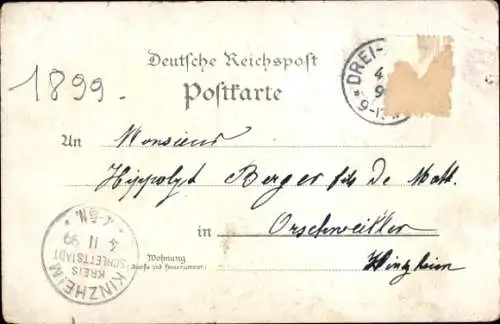 Deutsche Reichspost
Postkarte
1899.
DREI-
4
9
9-1
An Monsieur
Hippolyt Berger fils De Math.
in Orschweiller
Wohnung
(Straße und Hausnummer)
Kinzheim
KINZHEIM
KREIS
SCHLETTSTADT
4 11 99
4-5N.